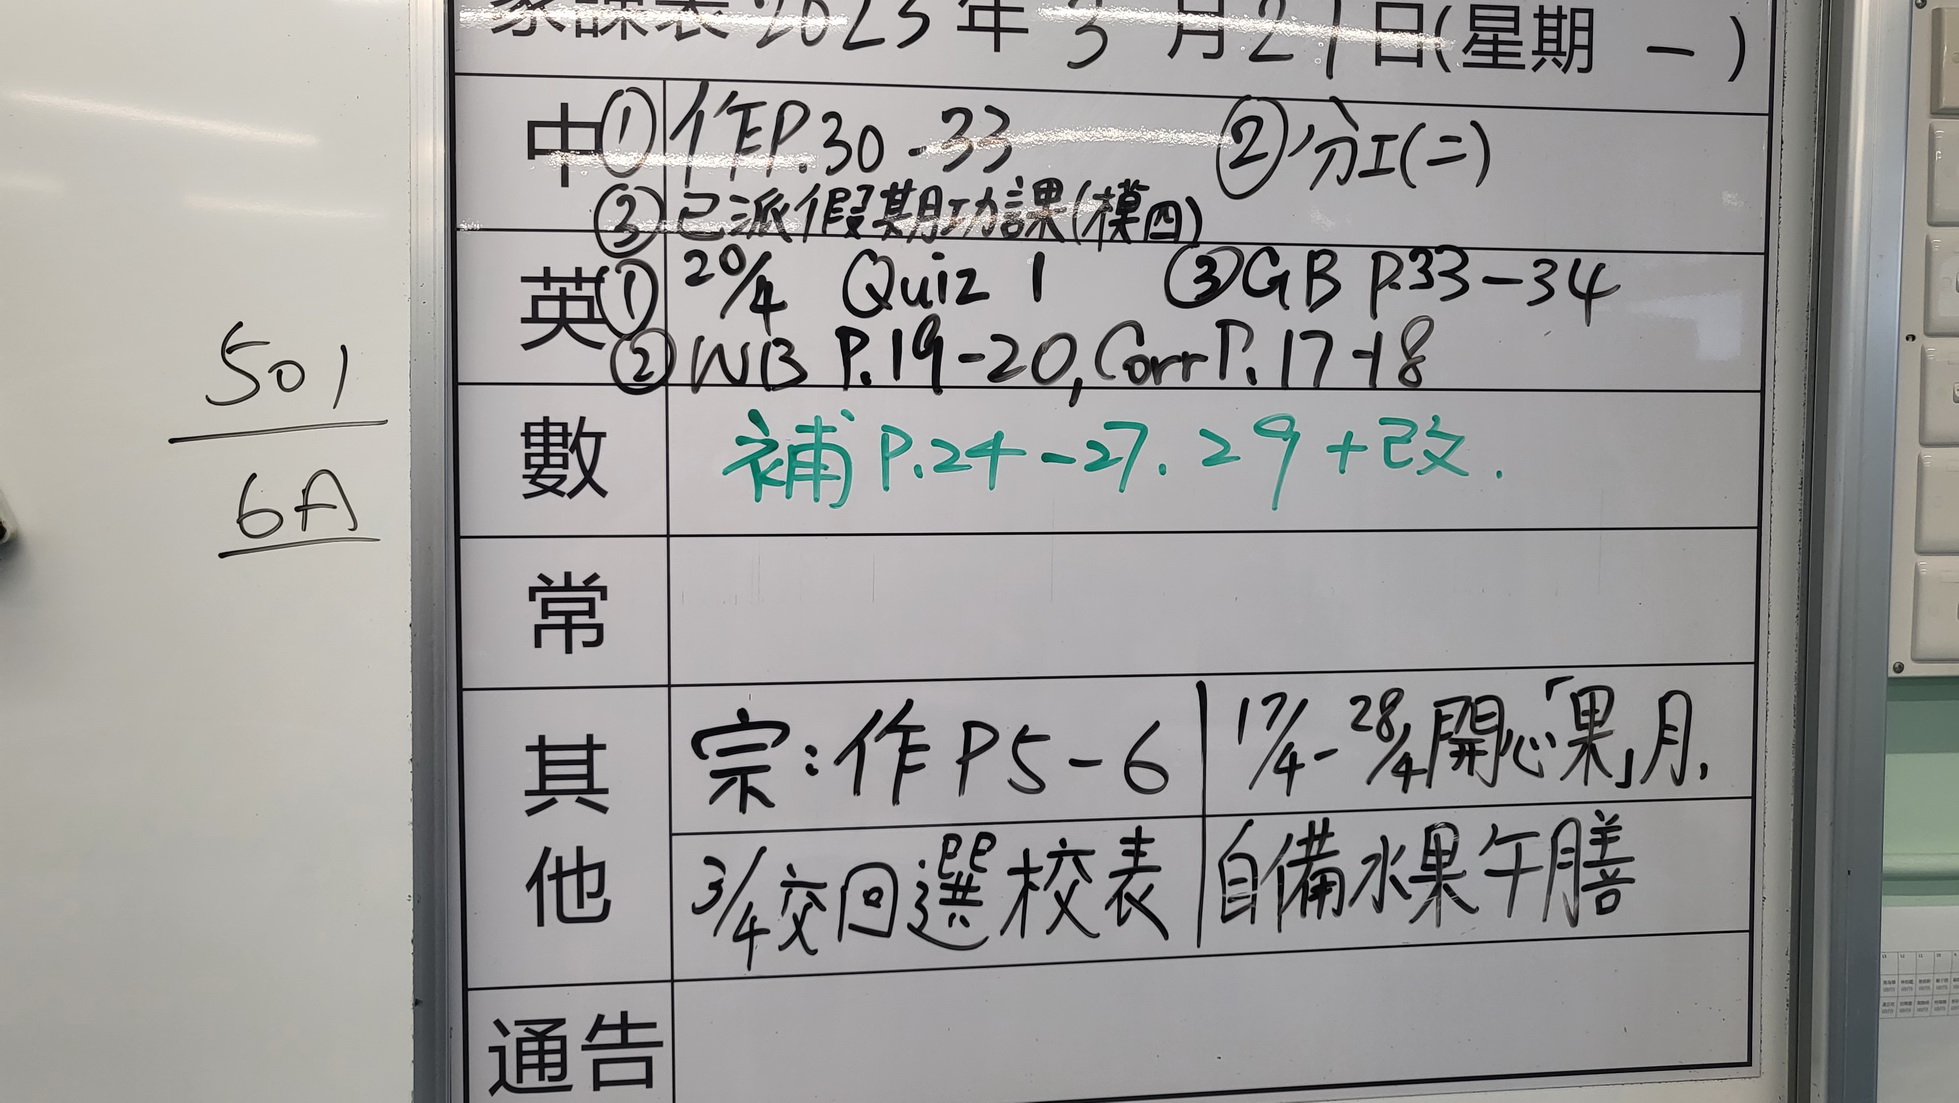 家課表 2023年 3月27日(星期 一)
中 ① 作P.30-33 ② 分工(二)
③ 已派假期功課(模四)
英 ① 20/4 Quiz 1 ③ GB P.33-34
② WB P.19-20, Corr P.17-18
數 補 P.24-27. 29+改.
501
6A
常
其他
宗:作 P5-6
17/4-28/4 開心「果」月,
3/4交回選校表
自備水果午膳
通告